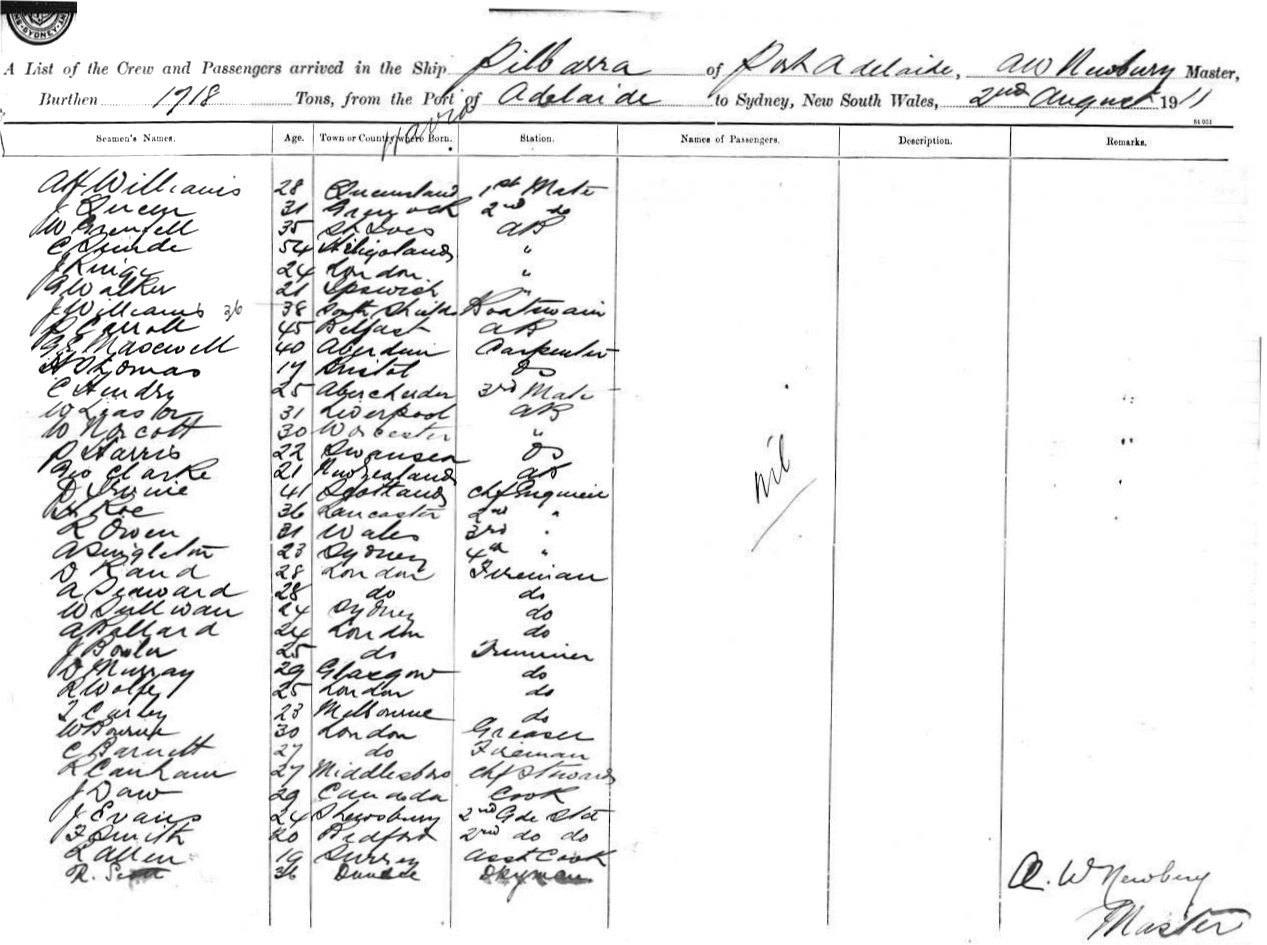 SYDNEY
A List of the Crew and Passengers arrived in the Ship Pilbarra of Port Adelaide, AW Newbury Master,
Burthen 1718 Tons, from the Port of Adelaide to Sydney, New South Wales, 2nd August 1911
S1 051
Seamen's Names. Age. Town or Country where Born. Station. Names of Passengers. Description. Remarks.
Williams 28 Queensland 1st Mate
J Queen 31 Greenock 2nd do
W Grenfell 35 St Ives AB
C 54 Heligoland "
J 24 London "
G Walker 21 Ipswich "
J Williams 36 38 South Shields Boatswain
P Carroll 45 Belfast AB
G E Maxwell 40 Aberdeen Carpenter
H Thomas 17 Bristol OS
C Hendry 25 3rd Mate
W 31 Liverpool AB
W Norcott 30 Worcester "
P Harris 22 Swansea OS
Geo Clarke 21 New Zealand AB
D 41 Scotland Chf Engineer
H Roe 36 Lancaster 2nd "
R Owen 31 Wales 3rd "
A Singleton 23 Sydney 4th "
D Rand 28 London Fireman
A Seaward 28 do do
W Sullivan 24 Sydney do
A Pollard 24 London do
J 25 do Trimmer
D Murray 29 Glasgow do
R Wolfe 25 London do
T 23 Melbourne do
W Bourne 30 London Greaser
C Barnett 27 do Fireman
R Canham 27 Middlesboro Chf Steward
J Daw 29 Canada Cook
J Evans 24 Shewsbury 2nd Gde Std
F Smith 20 Bedford 2nd do do
L Allen 19 Surrey Asst Cook
R. Scott 36 Dundee Dkyman
nil
A. W Newbury
Master